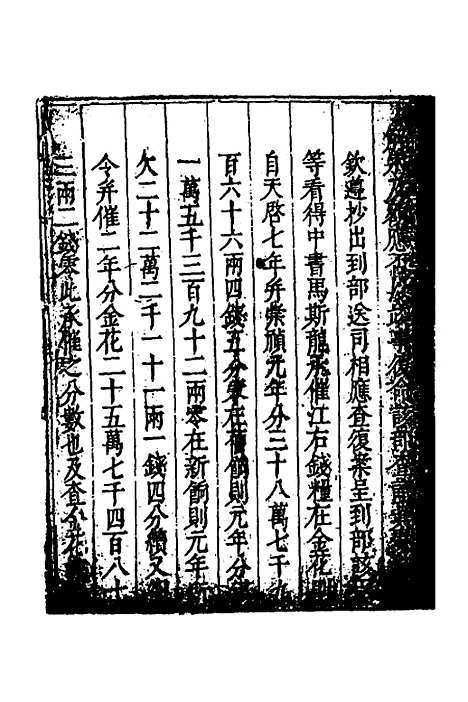 欽遵抄出到部送司相應查復案呈到部該
等看得中書馬斯龍承催江右錢糧在金花
自天啓七年并崇禎元年分三十八萬七千
百六十六兩四錢五分零在舊餉則元年分
一萬五千三百九十二兩零在新餉則元年
欠二十二萬二千一十一兩一錢四分積又
令并催二年分金花二十五萬七千四百八十
三兩二錢零此承催之分數也及查金花